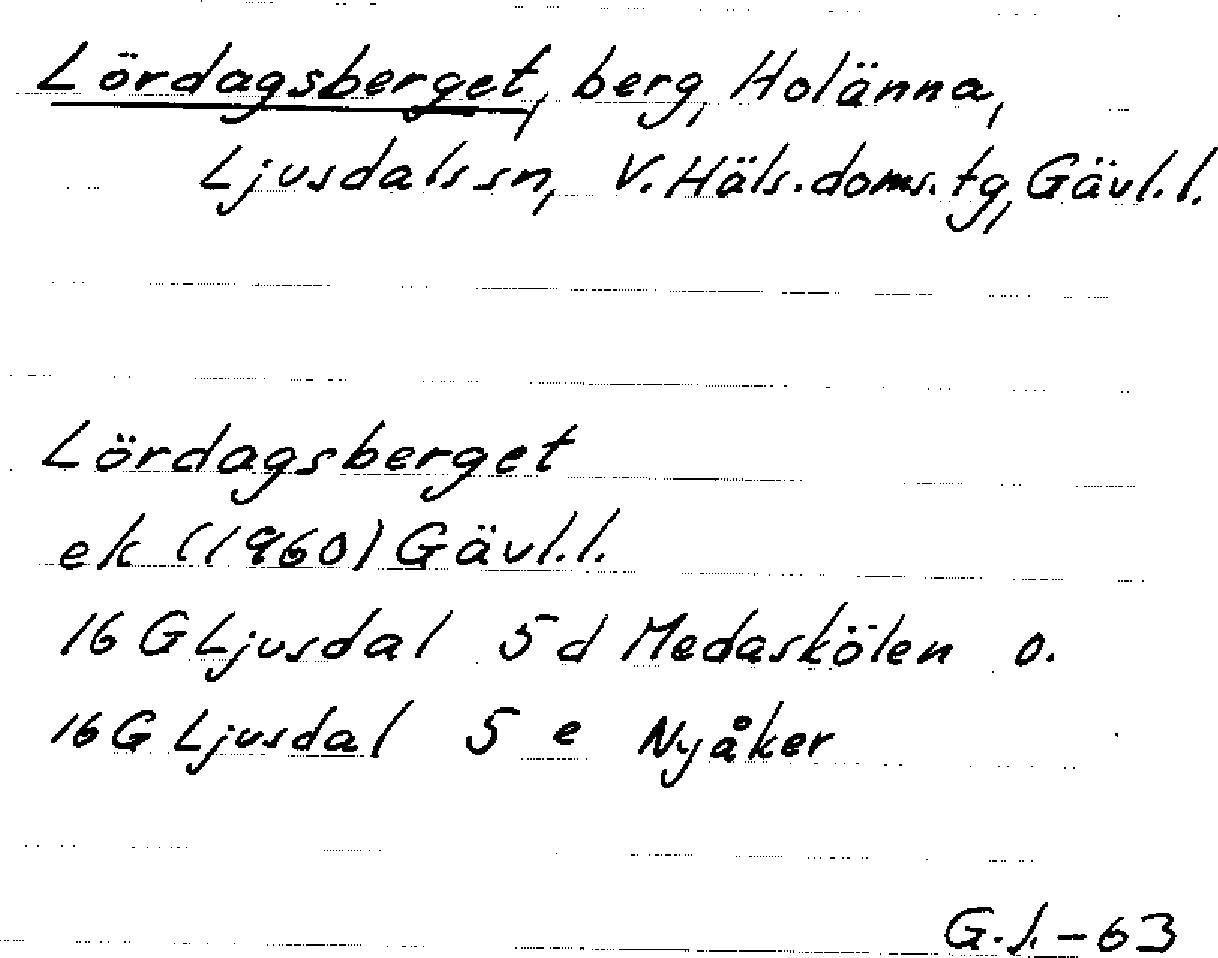 Lördagsberget, berg, Holänna,
Ljusdals sn, V. Häls. doms. tg, Gävl. l.
Lördagsberget
ek (1960) Gävl. l.
16 G Ljusdal 5 d Medaskölen o.
16 G Ljusdal 5 e Nyåker
G. l. - 63